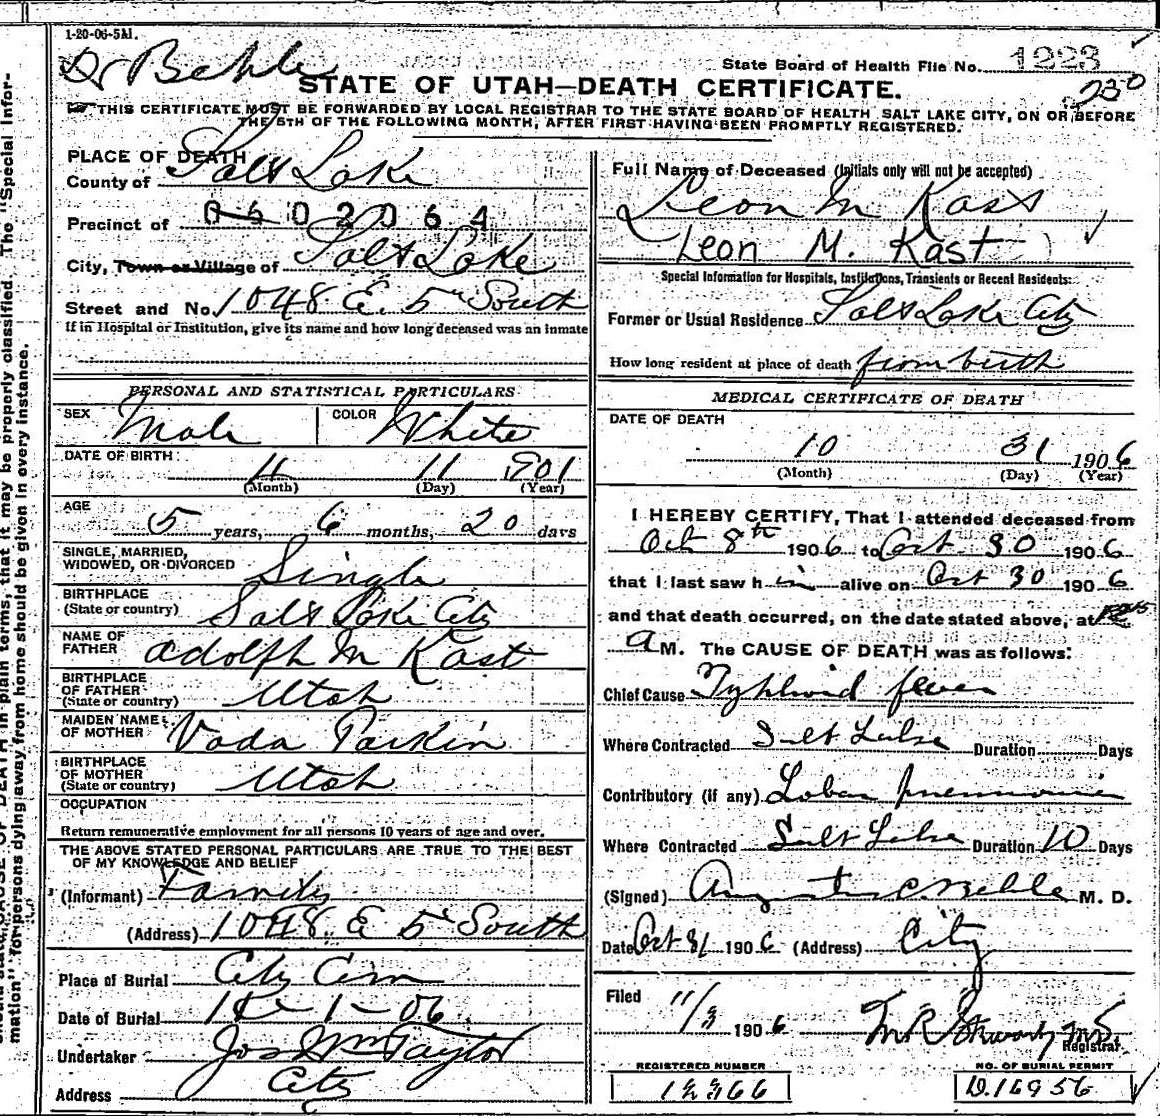 1-20-06-5M.
Dr Behle
State Board of Health File No. 1223
STATE OF UTAH—DEATH CERTIFICATE.
230
THIS CERTIFICATE MUST BE FORWARDED BY LOCAL REGISTRAR TO THE STATE BOARD OF HEALTH SALT LAKE CITY, ON OR BEFORE
THE 5TH OF THE FOLLOWING MONTH, AFTER FIRST HAVING BEEN PROMPTLY REGISTERED.
PLACE OF DEATH
County of Salt Lake
Precinct of 0602064
City, Town or Village of Salt Lake
Street and No. 1048 E. 5th South
If in Hospital or Institution, give its name and how long deceased was an inmate
PERSONAL AND STATISTICAL PARTICULARS
SEX Male COLOR White
DATE OF BIRTH: 4 11 1901
(Month) (Day) (Year)
AGE
5 years, 6 months, 20 days
SINGLE, MARRIED,
WIDOWED, OR DIVORCED Single
BIRTHPLACE
(State or country) Salt Lake City
NAME OF
FATHER Adolph M Kast
BIRTHPLACE
OF FATHER
(State or country) Utah
MAIDEN NAME
OF MOTHER Vada Parkin
BIRTHPLACE
OF MOTHER
(State or country) Utah
OCCUPATION
Return remunerative employment for all persons 10 years of age and over.
THE ABOVE STATED PERSONAL PARTICULARS ARE TRUE TO THE BEST
OF MY KNOWLEDGE AND BELIEF
(Informant) Family
(Address) 1048 E 5 South
Place of Burial City Cem
Date of Burial 1-06
Undertaker Jos Wm Taylor
Address City
Full Name of Deceased (Initials only will not be accepted)
Leon M Kast
Leon M. Kast
Special Information for Hospitals, Institutions, Transients or Recent Residents:
Former or Usual Residence Salt Lake City
How long resident at place of death from birth
MEDICAL CERTIFICATE OF DEATH
DATE OF DEATH
10 31 1906
(Month) (Day) (Year)
I HEREBY CERTIFY, That I attended deceased from
Oct 8th 1906 to Oct 30 1906
that I last saw him alive on Oct 30 1906
and that death occurred, on the date stated above, at
a M. The CAUSE OF DEATH was as follows:
Chief Cause Typhoid fever
Where Contracted Salt Lake Duration Days
Contributory (if any) Lobar pneumonia
Where Contracted Salt Lake Duration 10 Days
(Signed) Augustus C. Behle M. D.
Date Oct 31 1906 (Address) City
Filed 11/3 1906
Registrar
REGISTERED NUMBER
NO. OF BURIAL PERMIT
D.16956
mation" for persons dying away from home should be given in every instance.
DEATH in plain terms, that it may be properly classified. The "Special Infor-